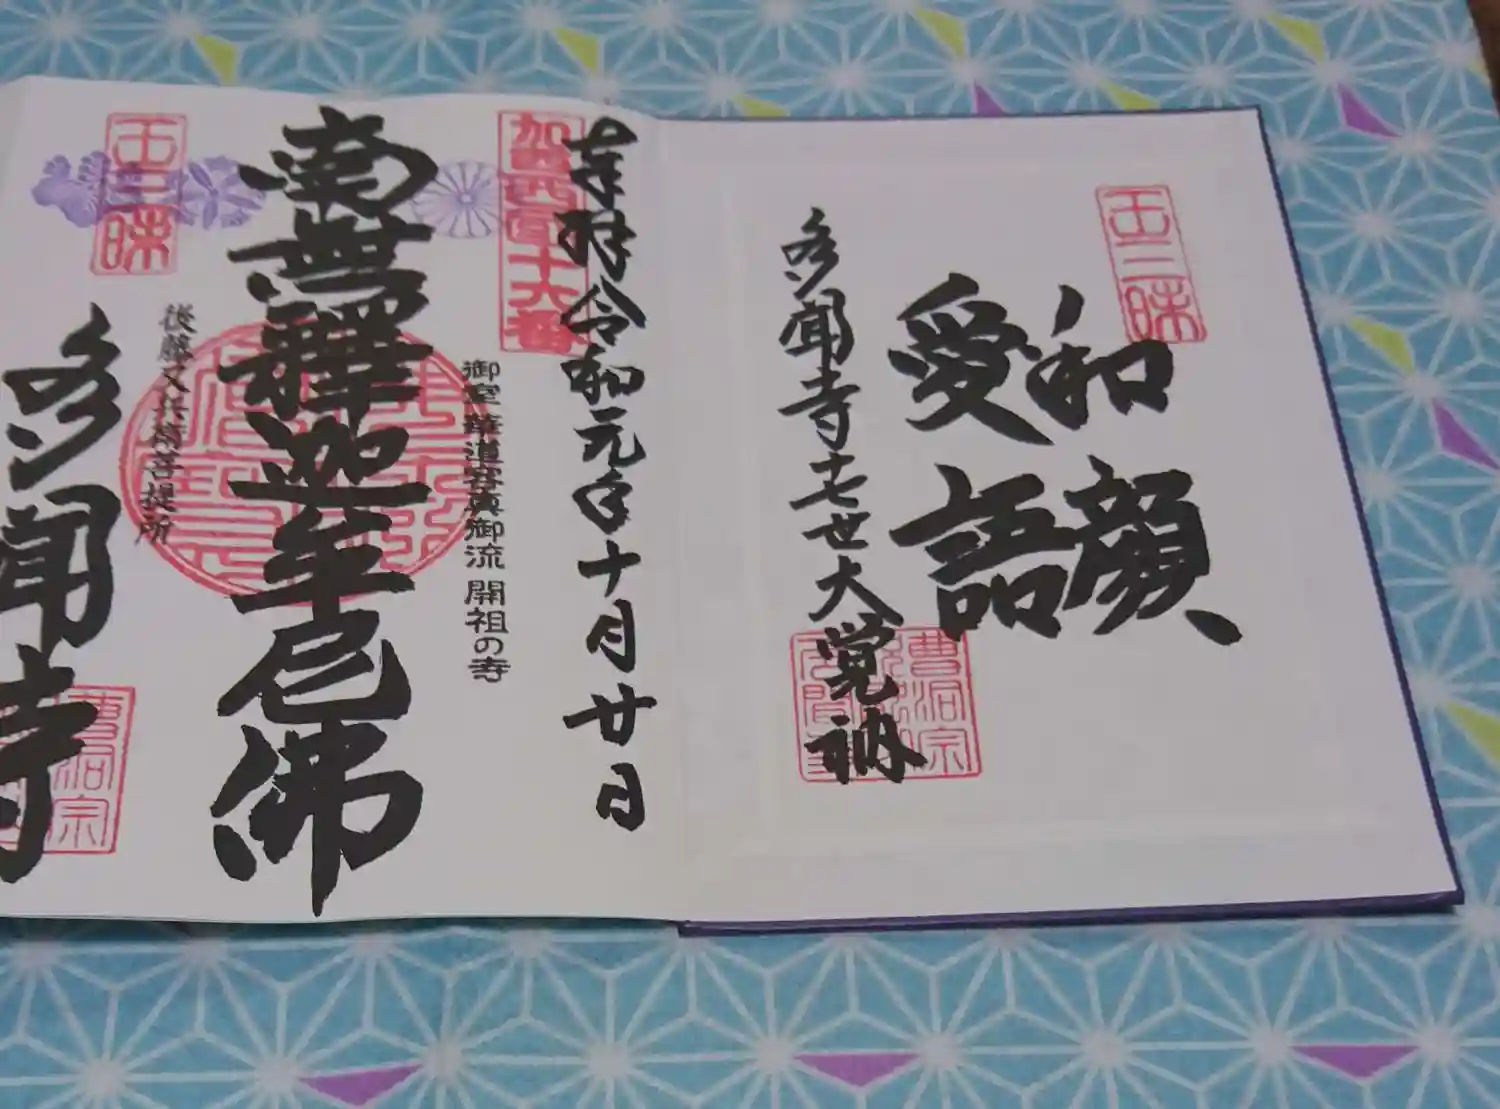 王三昧
和顔
愛語
多聞寺十七世大覚衲
曹洞宗
奉拝令和元年十月廿日
加西西国十六番
御室 華道容真御流 開祖の寺
南無釋迦牟尼佛
王三昧
後藤又兵衛菩提所
多聞寺
曹洞宗